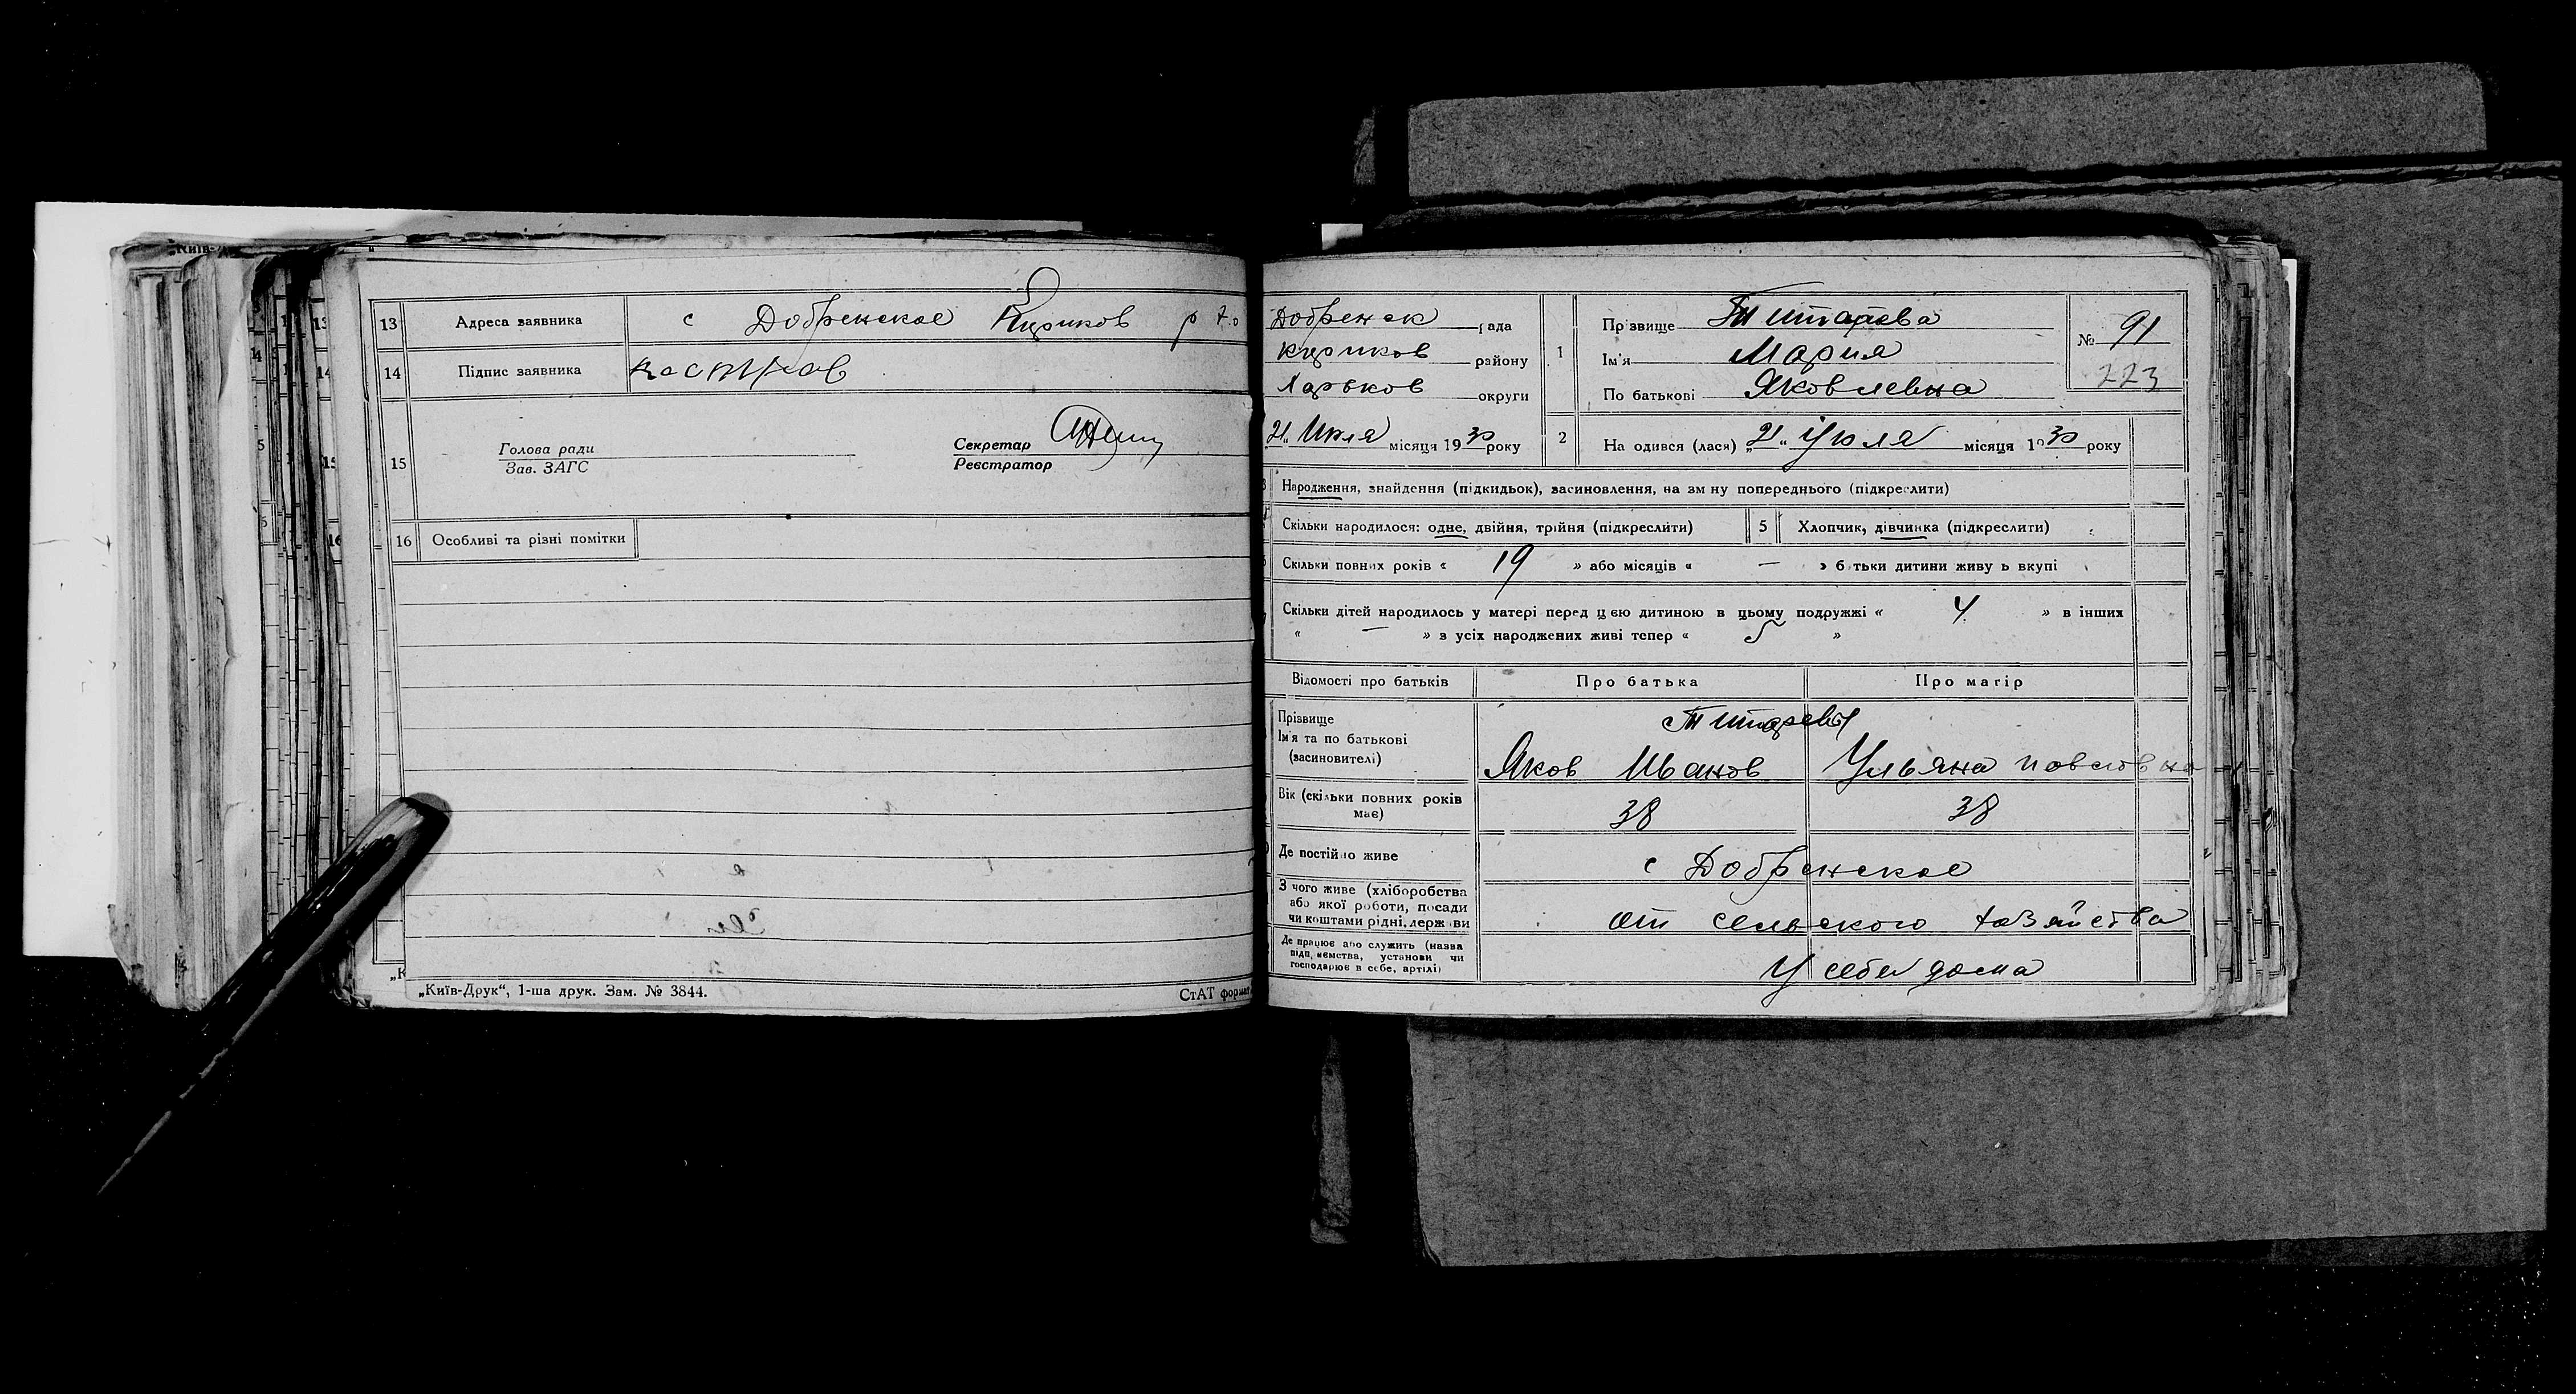 „Київ-
13 Адреса заявника с Добренское р
14 Підпис заявника
15 Голова ради
Зав. ЗАГС
Секретар
Реєстратор
16 Особливі та різні помітки
„Київ-Друк“, 1-ша друк. Зам. № 3844.
СтАТ формат
Добренск рада
району
Харьков округи
1 Прізвище Титарева
Ім'я Мария
По батькові Яковлевна
№ 91
223
21 Июля місяця 1930 року
2 На одився (лася) „21“ Июля місяця 1930 року
Народження, знайдення (підкидьок), засиновлення, на зм ну попереднього (підкреслити)
Скільки народилося: одне, двійня, трійня (підкреслити)
5 Хлопчик, дівчинка (підкреслити)
Скільки повних років « 19 » або місяців « — » батьки дитини живу ь вкупі
Скільки дітей народилось у матері перед цією дитиною в цьому подружжі « 4 » в інших
« — » з усіх народжених живі тепер « 5 »
Відомості про батьків Про батька Про матір
Прізвище Титаревы
Ім'я та по батькові
(засиновителі) Яков Иванов Ульяна Повловна
Вік (скільки повних років
має) 38 38
Де постійно живе с Добренское
З чого живе (хліборобства
або якої роботи, посади
чи коштами рідні, держави от сельского хозяйства
Де працює або служить (назва
підп, иємства, установи чи
господарює в себе, артілі) У себя дома